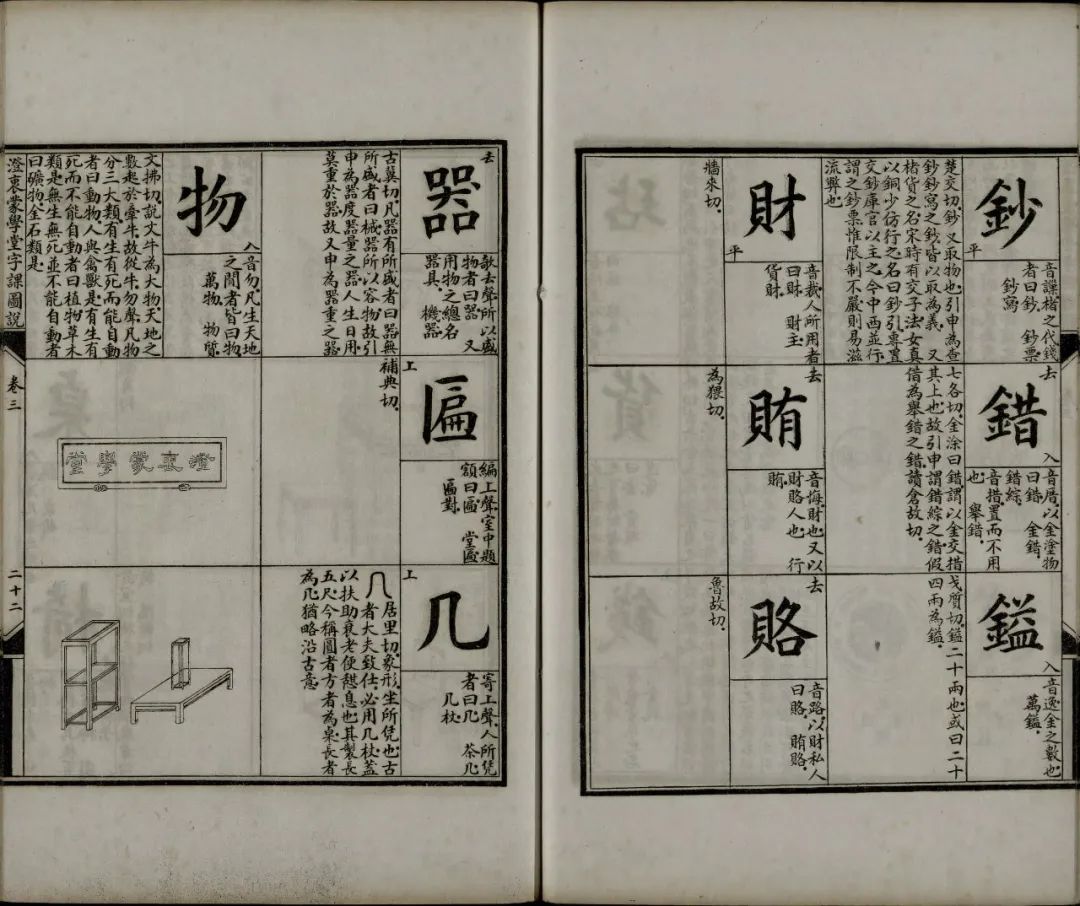 鈔
平
音謀楮之代錢
者曰鈔　鈔票
鈔寫
楚交切鈔又取物也引申為查
鈔鈔寫之鈔皆以取為義　又
楮貨之名宋時有交子法女真
以銅少仿行之名曰鈔引專置
交鈔庫官以主之今中西並行
謂之鈔票惟限制不嚴則易滋
流弊也
去
錯
入
音厝以金塗物
曰錯　金錯
錯綜
音措置而不用
也　舉錯
七各切金涂曰錯謂以金交措
其上也故引申謂錯綜之錯假
借為舉錯之錯讀倉故切
鎰
入
音逸金之數也
萬鎰
弋質切鎰二十兩也或曰二十
四兩為鎰
財
平
音裁人所用者
曰財　財主
貨財
牆來切
去
賄
音悔財也又以
財賂人也　行
賄
為猥切
去
賂
音路以財私人
曰賂　賄賂
魯故切
去
器
欷去聲所以盛
物者曰器　又
用物之總名
器具　機器
古冀切凡器有所盛者曰器無
所盛者曰械器所以容物故引
申為器度器量之器人生日用
莫重於器故又申為器重之器
上
匾
編上聲室中題
額曰匾　堂匾
匾對
補典切
澄衷蒙學堂
上
几
寄上聲人所凭
者曰几　茶几
几杖
居里切象形坐所凭也古
者大夫致仕必用几杖蓋
以扶助衰老便憩息也其製長
五尺今稱圓者方者為桌長者
為几猶略沿古意
物
入
音勿凡生天地
之間者皆曰物
萬物　物質
文拂切說文牛為大物天地之
數起於牽牛故從牛勿聲凡物
分三大類有生有死而能自動
者曰動物人與禽獸是有生有
死而不能自動者曰植物草木
類是無生無死並不能自動者
曰礦物金石類是
澄衷蒙學堂字課圖說
卷三
二十二